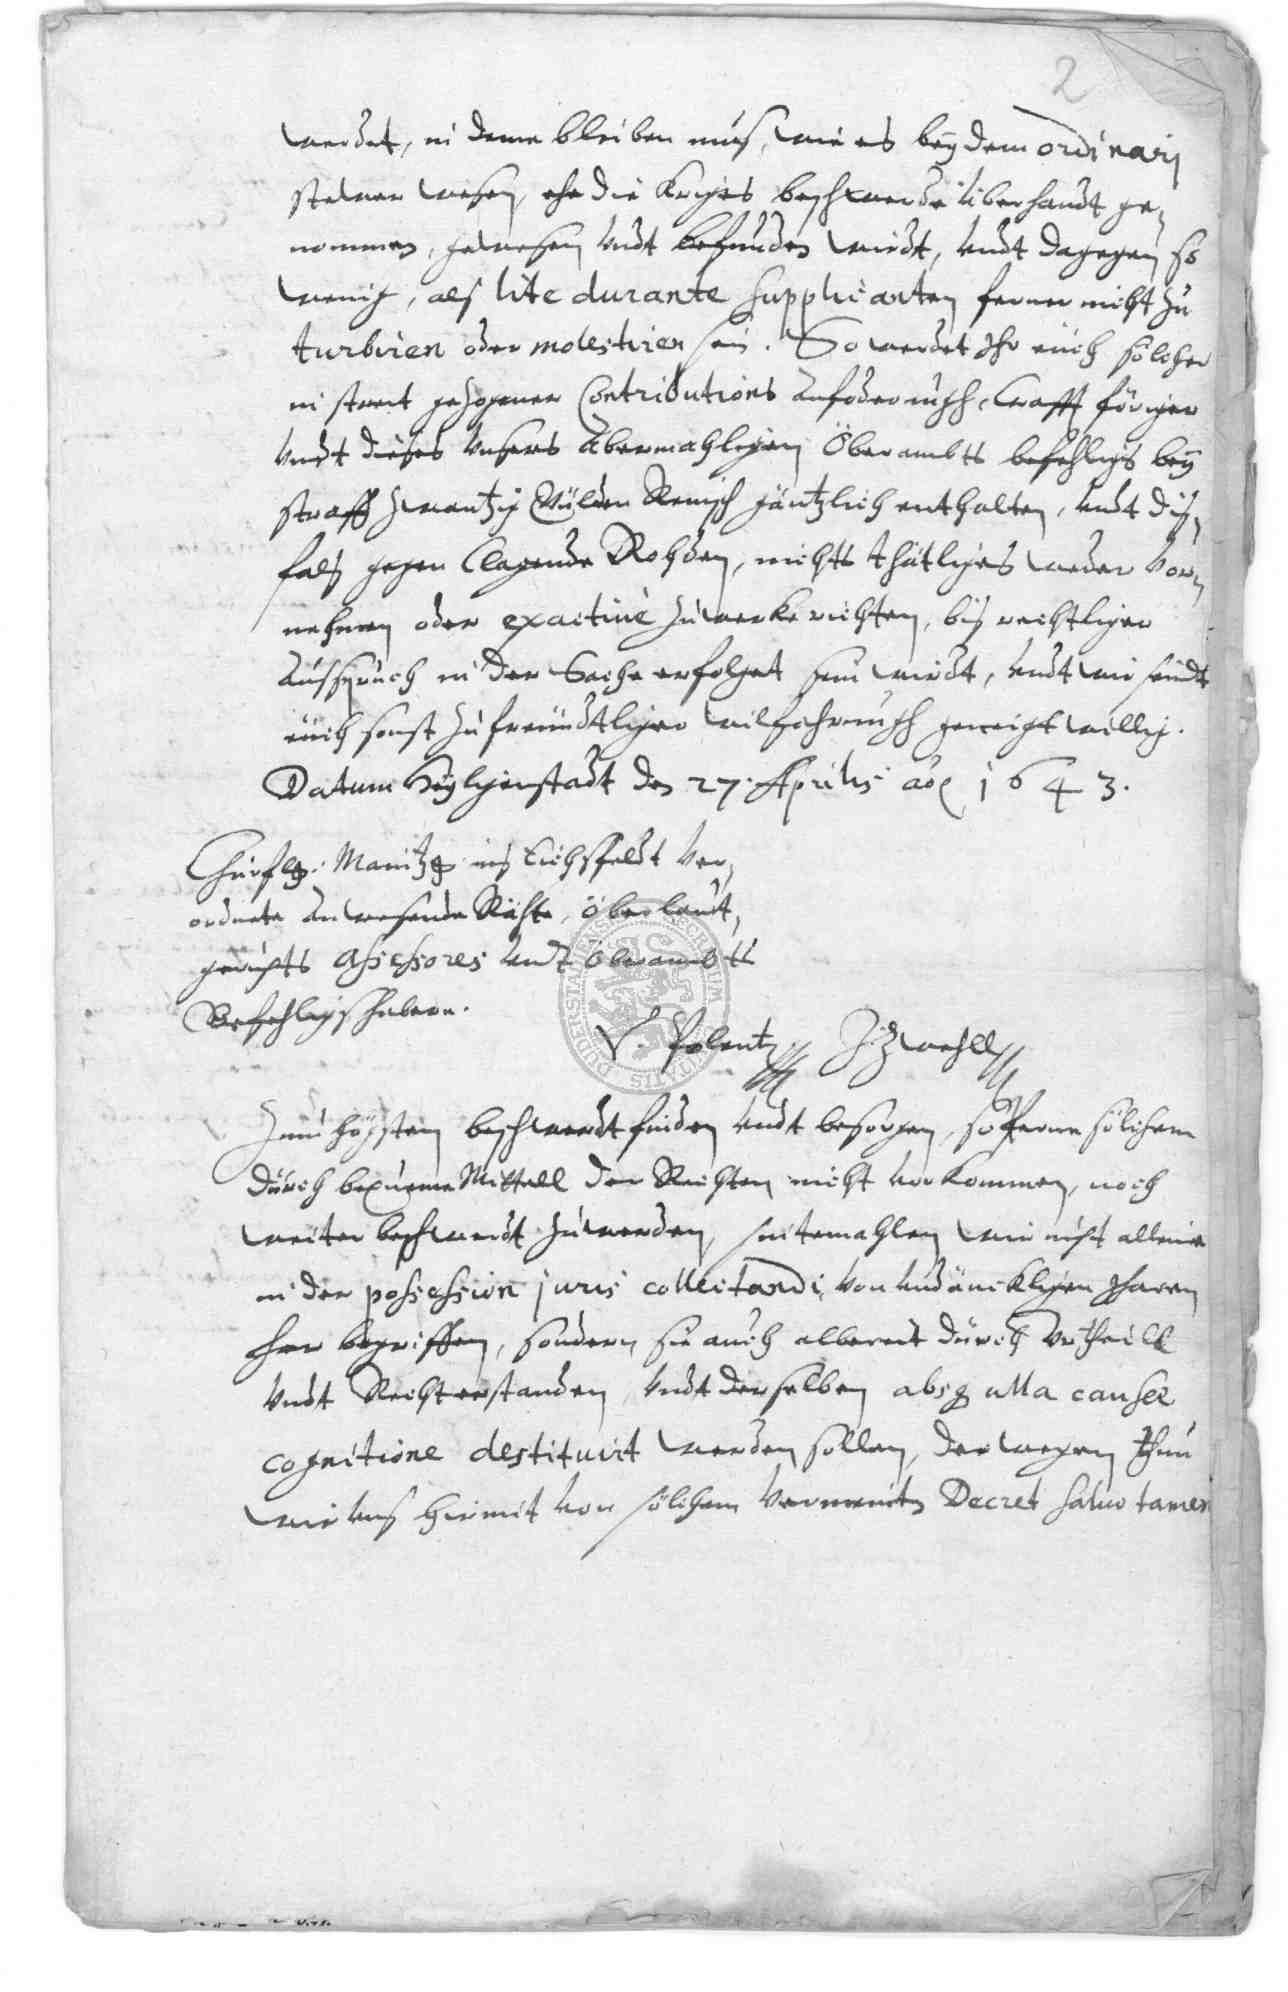 2
werdet, in deme bleiben mus, wie es bey dem ordinarij
stewer wesen, ehe die Kriges beschwerde überhandt ge-
nommen, gewesen undt befunden wirdt, undt dagegen so
wenig, als lite durante Supplicanten ferner nicht zu
turbiren oder molestiren sein. So werdet Ihr euch solcher
in streit gezogener Contributions anfoderungh, Crafft föriger
undt dieses unsers abermahligen Oberambts befehligs bey
straff zwantzig Gülden Reinisch gäntzlich enthalten, undt dis-
fals gegen Clagende Rohden, nichts thätliges weder vor-
nehmen oder exactive zuwerke richten, bis rechtliger
ausspruch in der Sache erfolget sein wirdt, undt wir seindt
euch sonst zu freundtliger wilfahrungh geneigt willig.
Datum Heyligenstadt den 27. Aprilis ao 1643.
Churfl. Maintz. ins Eichsfeldt ver-
ordnete anwesende Räthe, Oberlandt-
gerichts Assessores undt Oberambts
Befehligshabere.
DUDERSTADENSIS SECRETUM CIVITATIS
V. Polentz
Zum högsten beschwerdt finden undt besorgen, so ferne solchem
durch bequeme Mittell der Rechten nicht vorkommen, noch
weiter beschwerdt zuwerden, sintemahlen wir nicht alleine
in der possession juris collectandi, von undänckligen Jharen
her begriffen, sondern sie auch albereit durch Urtheill
undt Recht erstanden, undt derselben absq ulla causae
cognitione destituirt werden sollen, derwegen thun
wir uns hiemit von solchem vermeinten Decret salvo tamen